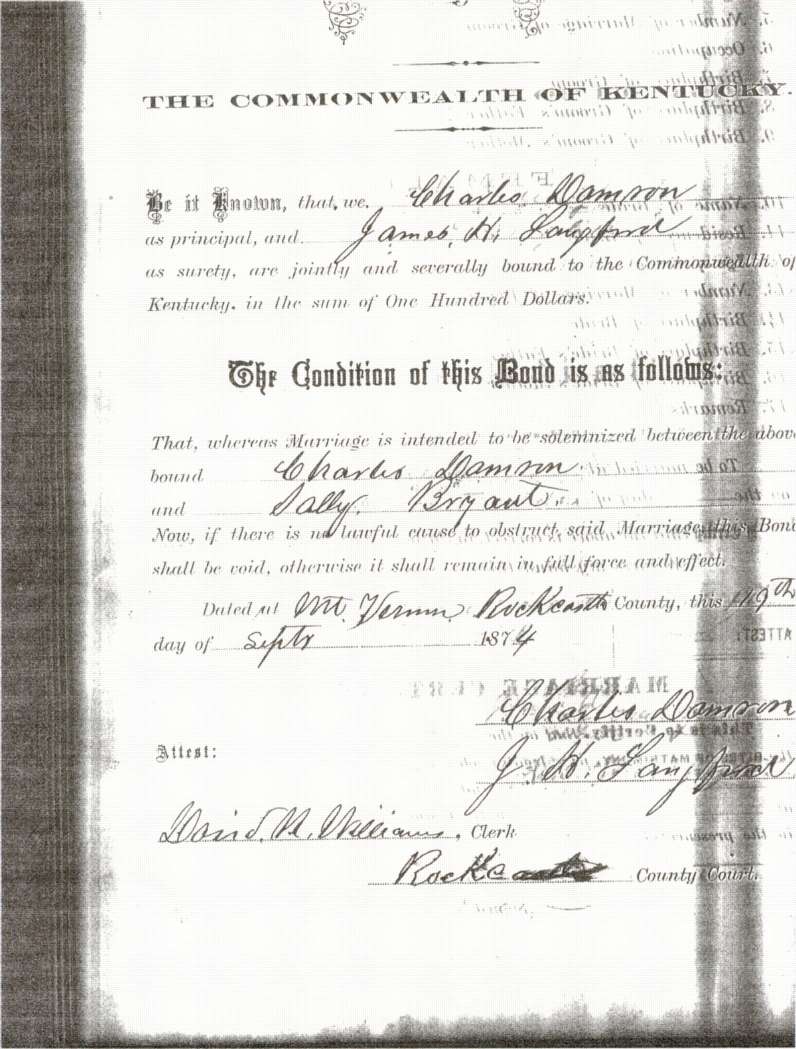 THE COMMONWEALTH OF KENTUCKY.
Be it Known, that, we, Charles Damron
as principal, and James, H. Langford
as surety, are jointly and severally bound to the Commonwealth of
Kentucky, in the sum of One Hundred Dollars.
The Condition of this Bond is as follows:
That, whereas Marriage is intended to be solemnized between the above
bound Charles Damron
and Sally Bryant.
Now, if there is no lawful cause to obstruct said Marriage, this Bond
shall be void, otherwise it shall remain in full force and effect.
Dated at Mt. Vernon Rockcastle County, this 19th
day of Septr 1874
Charles Damron
Attest:
J. H. Langford
Williams, Clerk
Rockcastle County Court.